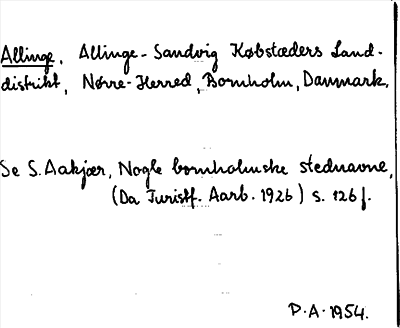 Allinge, Allinge-Sandvig Købstæders Land-
distrikt, Nørre-Herred, Bornholm, Danmark.
Se S. Aakjær, Nogle bornholmske stednavne,
(Da Turistf. Aarb. 1926) s. 126 f.
P.A. 1954.